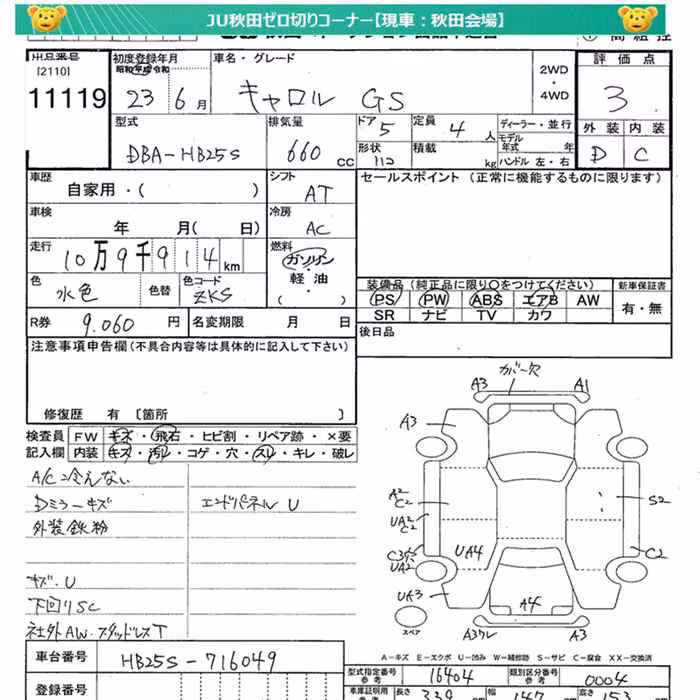 JU秋田ゼロ切りコーナー【現車：秋田会場】
出品番号 初度登録年月 車名・グレード 評価点
[2110] 昭和 平成 令和 2WD
11119 23年6月 キャロル GS ・4WD 3
型式 排気量 ドア 5 定員 4人 ディーラー・並行 外装 内装
モデル年式 年
DBA-HB25S 660cc 形状 積載 kg ハンドル 左・右 D C
車歴 自家用・( ) シフト AT セールスポイント (正常に機能するものに限ります)
車検 年 月( 日) 冷房 AC
走行 10万9千914km 燃料 ガソリン・軽・油・( )
色 水色 色替 色コード ZKS 装備品 (純正品に限り○をつけてください) 新車保証書
PS PW ABS エアB AW 有・無
R券 9.060円 名変期限 月 日 SR ナビ TV カワ
注意事項申告欄(不具合内容等は具体的に記入して下さい) 後日品
修復歴 有 [箇所 ]
検査員 FW キズ・飛石・ヒビ割・リペア跡・×要
記入欄 内装 キズ・汚レ・コゲ・穴・スレ・キレ・破レ
A/C冷えない
Dミラーキズ エンドパネルU
外装鉄粉
キズ.U
下回りSC
社外AW.スタッドレスT
カバー欠
A3 A1
A3
A2
C2 S2
UA2
C2
C3穴 UA4 C2
UA2
UA3 A4
スペア A3ワレ A3
A-キズ E-エクボ U-凹み W-補修跡 S-サビ C-腐食 XX-交換済
車台番号 HB25S-716049
型式指定番号 参考 16404 類別区分番号 参考 0004
登録番号 車庫証明用 長さ 339 幅 147 高さ